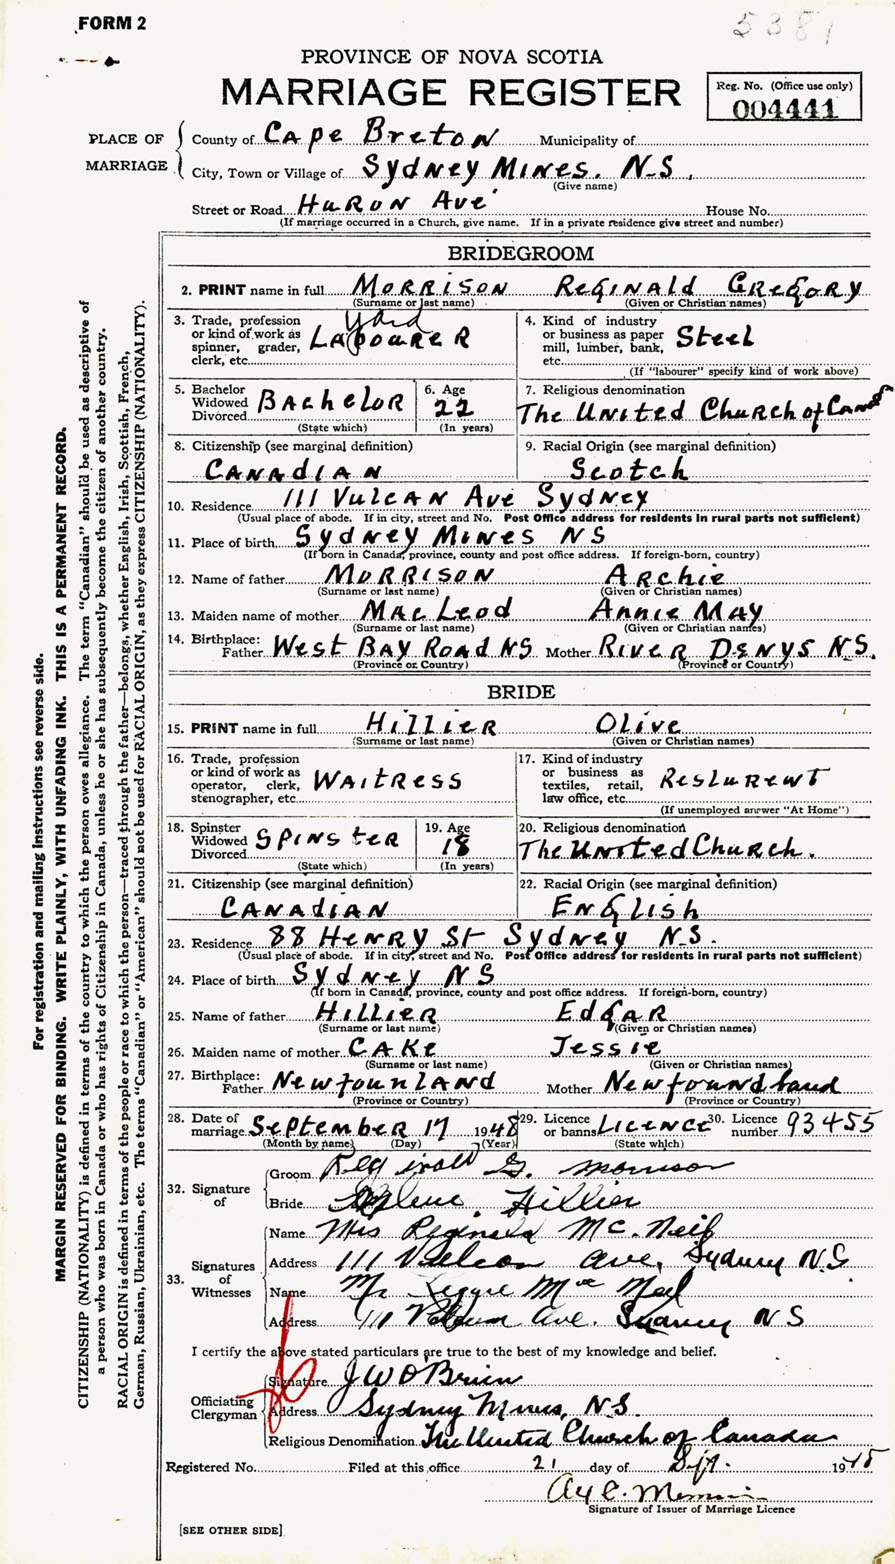 FORM 2
5381
PROVINCE OF NOVA SCOTIA
MARRIAGE REGISTER
Reg. No. (Office use only)
004441
PLACE OF MARRIAGE
County of Cape Breton Municipality of
City, Town or Village of Sydney Mines. N.S.
(Give name)
Street or Road Huron Ave' House No.
(If marriage occurred in a Church, give name. If in a private residence give street and number)
BRIDEGROOM
2. PRINT name in full Morrison Reginald Gregory
(Surname or last name) (Given or Christian names)
3. Trade, profession or kind of work as spinner, grader, clerk, etc. Yard Labourer
4. Kind of industry or business as paper mill, lumber, bank, etc. Steel
(If "labourer" specify kind of work above)
5. Bachelor Widowed Divorced Bachelor
(State which)
6. Age 22
(In years)
7. Religious denomination
The United Church of Canada
8. Citizenship (see marginal definition)
Canadian
9. Racial Origin (see marginal definition)
Scotch
10. Residence 111 Vulcan Ave Sydney
(Usual place of abode. If in city, street and No. Post Office address for residents in rural parts not sufficient)
11. Place of birth Sydney Mines NS
(If born in Canada, province, county and post office address. If foreign-born, country)
12. Name of father Morrison Archie
(Surname or last name) (Given or Christian names)
13. Maiden name of mother MacLeod Annie May
(Surname or last name) (Given or Christian names)
14. Birthplace: Father West Bay Road NS Mother River Denys N.S.
(Province or Country) (Province or Country)
BRIDE
15. PRINT name in full Hillier Olive
(Surname or last name) (Given or Christian names)
16. Trade, profession or kind of work as operator, clerk, stenographer, etc. Waitress
17. Kind of industry or business as textiles, retail, law office, etc. Reslurewt
(If unemployed answer "At Home")
18. Spinster Widowed Divorced Spinster
(State which)
19. Age 18
(In years)
20. Religious denomination
The United Church.
21. Citizenship (see marginal definition)
Canadian
22. Racial Origin (see marginal definition)
English
23. Residence 88 Henry St Sydney N.S.
(Usual place of abode. If in city, street and No. Post Office address for residents in rural parts not sufficient)
24. Place of birth Sydney NS
(If born in Canada, province, county and post office address. If foreign-born, country)
25. Name of father Hillier Edgar
(Surname or last name) (Given or Christian names)
26. Maiden name of mother Cake Jessie
(Surname or last name) (Given or Christian names)
27. Birthplace: Father Newfounland Mother Newfoundland
(Province or Country) (Province or Country)
28. Date of marriage September 17 1948
(Month by name) (Day) (Year)
29. Licence or banns Licence
(State which)
30. Licence number 93455
32. Signature of
Groom Reginald G. Morrison
Bride Hillier
33. Signatures of Witnesses
Name Mrs Reginald McNeil
Address 111 Vulcan Ave, Sydney N.S
Name Mr Reggie MacNeil
Address 111 Vulcan Ave. Sydney N S
I certify the above stated particulars are true to the best of my knowledge and belief.
Officiating Clergyman
Signature J W O'Brien
Address Sydney Mines, N.S.
Religious Denomination The United Church of Canada
Registered No. Filed at this office 21 day of Sept. 19
Signature of Issuer of Marriage Licence
[SEE OTHER SIDE]
For registration and mailing instructions see reverse side.
MARGIN RESERVED FOR BINDING. WRITE PLAINLY, WITH UNFADING INK. THIS IS A PERMANENT RECORD.
CITIZENSHIP (NATIONALITY) is defined in terms of the country to which the person owes allegiance. The term "Canadian" should be used as descriptive of
a person who was born in Canada or who has rights of Citizenship in Canada, unless he or she has subsequently become the citizen of another country.
RACIAL ORIGIN is defined in terms of the people or race to which the person—traced through the father—belongs, whether English, Irish, Scottish, French,
German, Russian, Ukrainian, etc. The terms "Canadian" or "American" should not be used for RACIAL ORIGIN, as they express CITIZENSHIP (NATIONALITY).